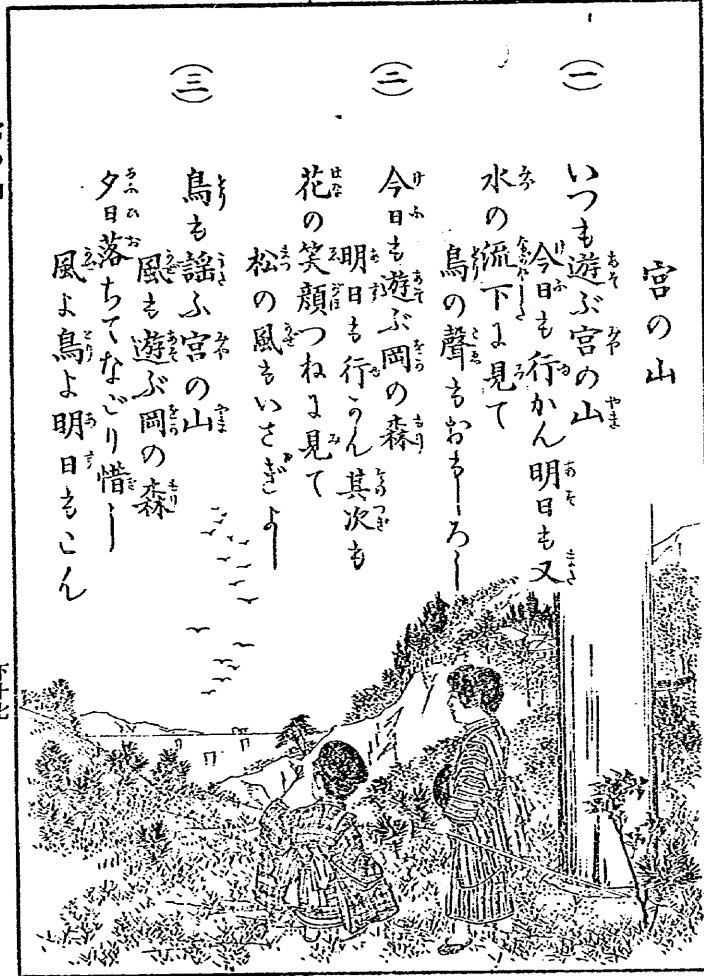 宮の山
(一)
いつも遊ぶ宮の山
今日も行かん明日も又
水の流下に見て
鳥の聲もおもしろし
(二)
今日も遊ぶ岡の森
明日も行かん其次も
花の笑顔つねに見て
松の風もいさぎよし
(三)
鳥も謡ふ宮の山
風も遊ぶ岡の森
夕日落ちてなごり惜し
風よ鳥よ明日もこん